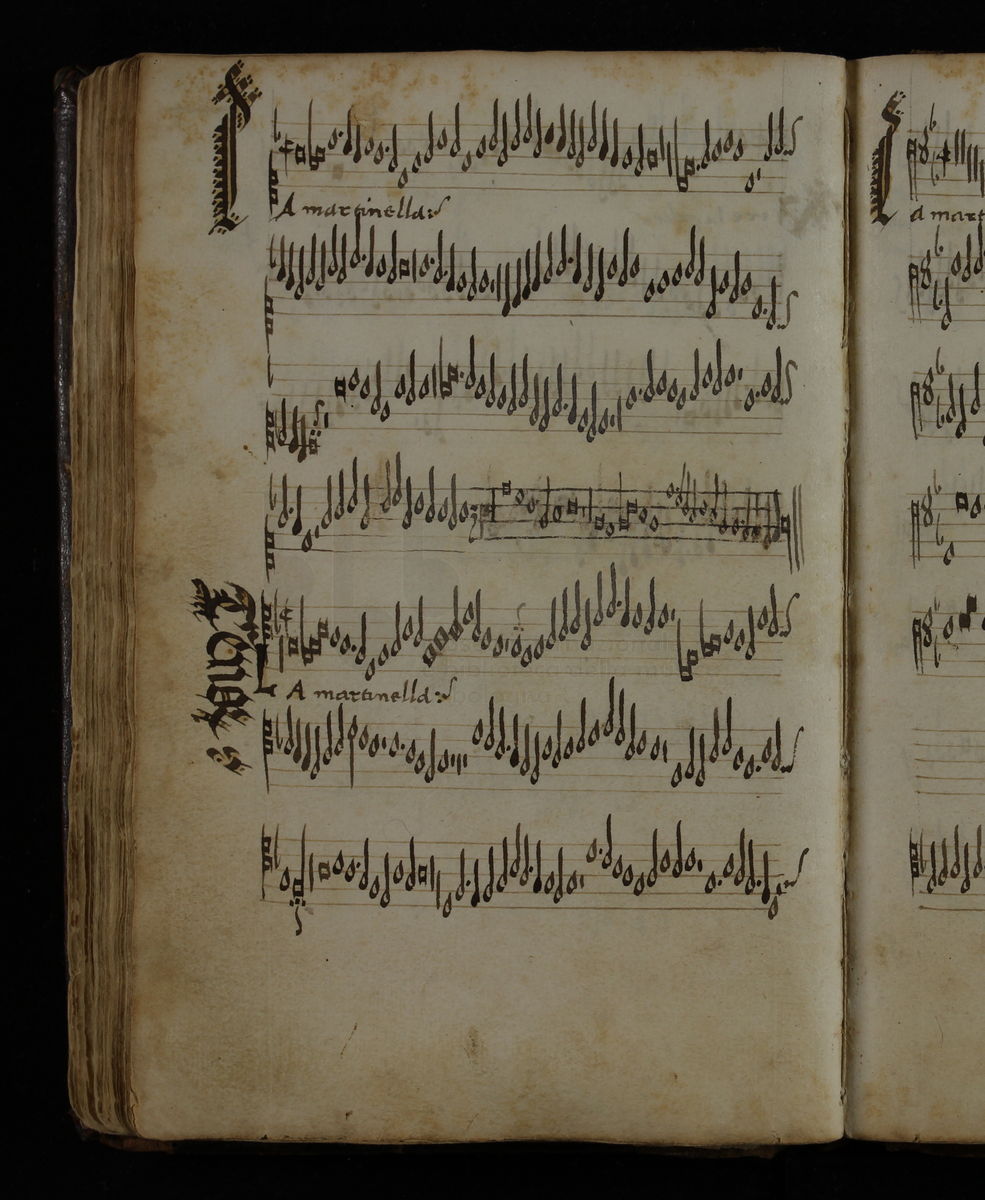 A martinella:
A martinella:
Tenor
A mart